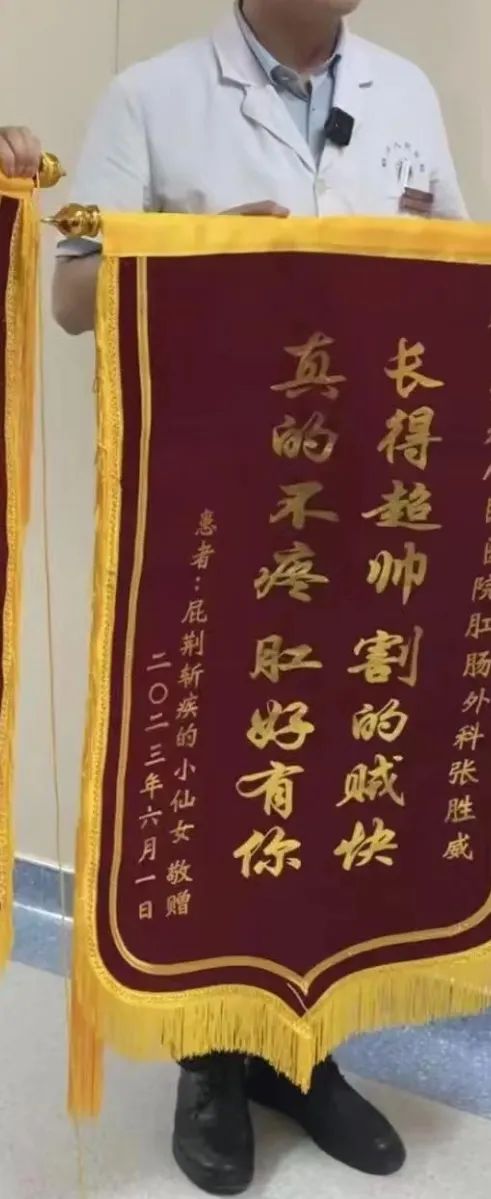 医院肛肠外科张胜威
长得超帅 割的贼快
真的不疼 肛好有你
患者：屁荆斩疾的小仙女 敬赠
二〇二三年六月一日